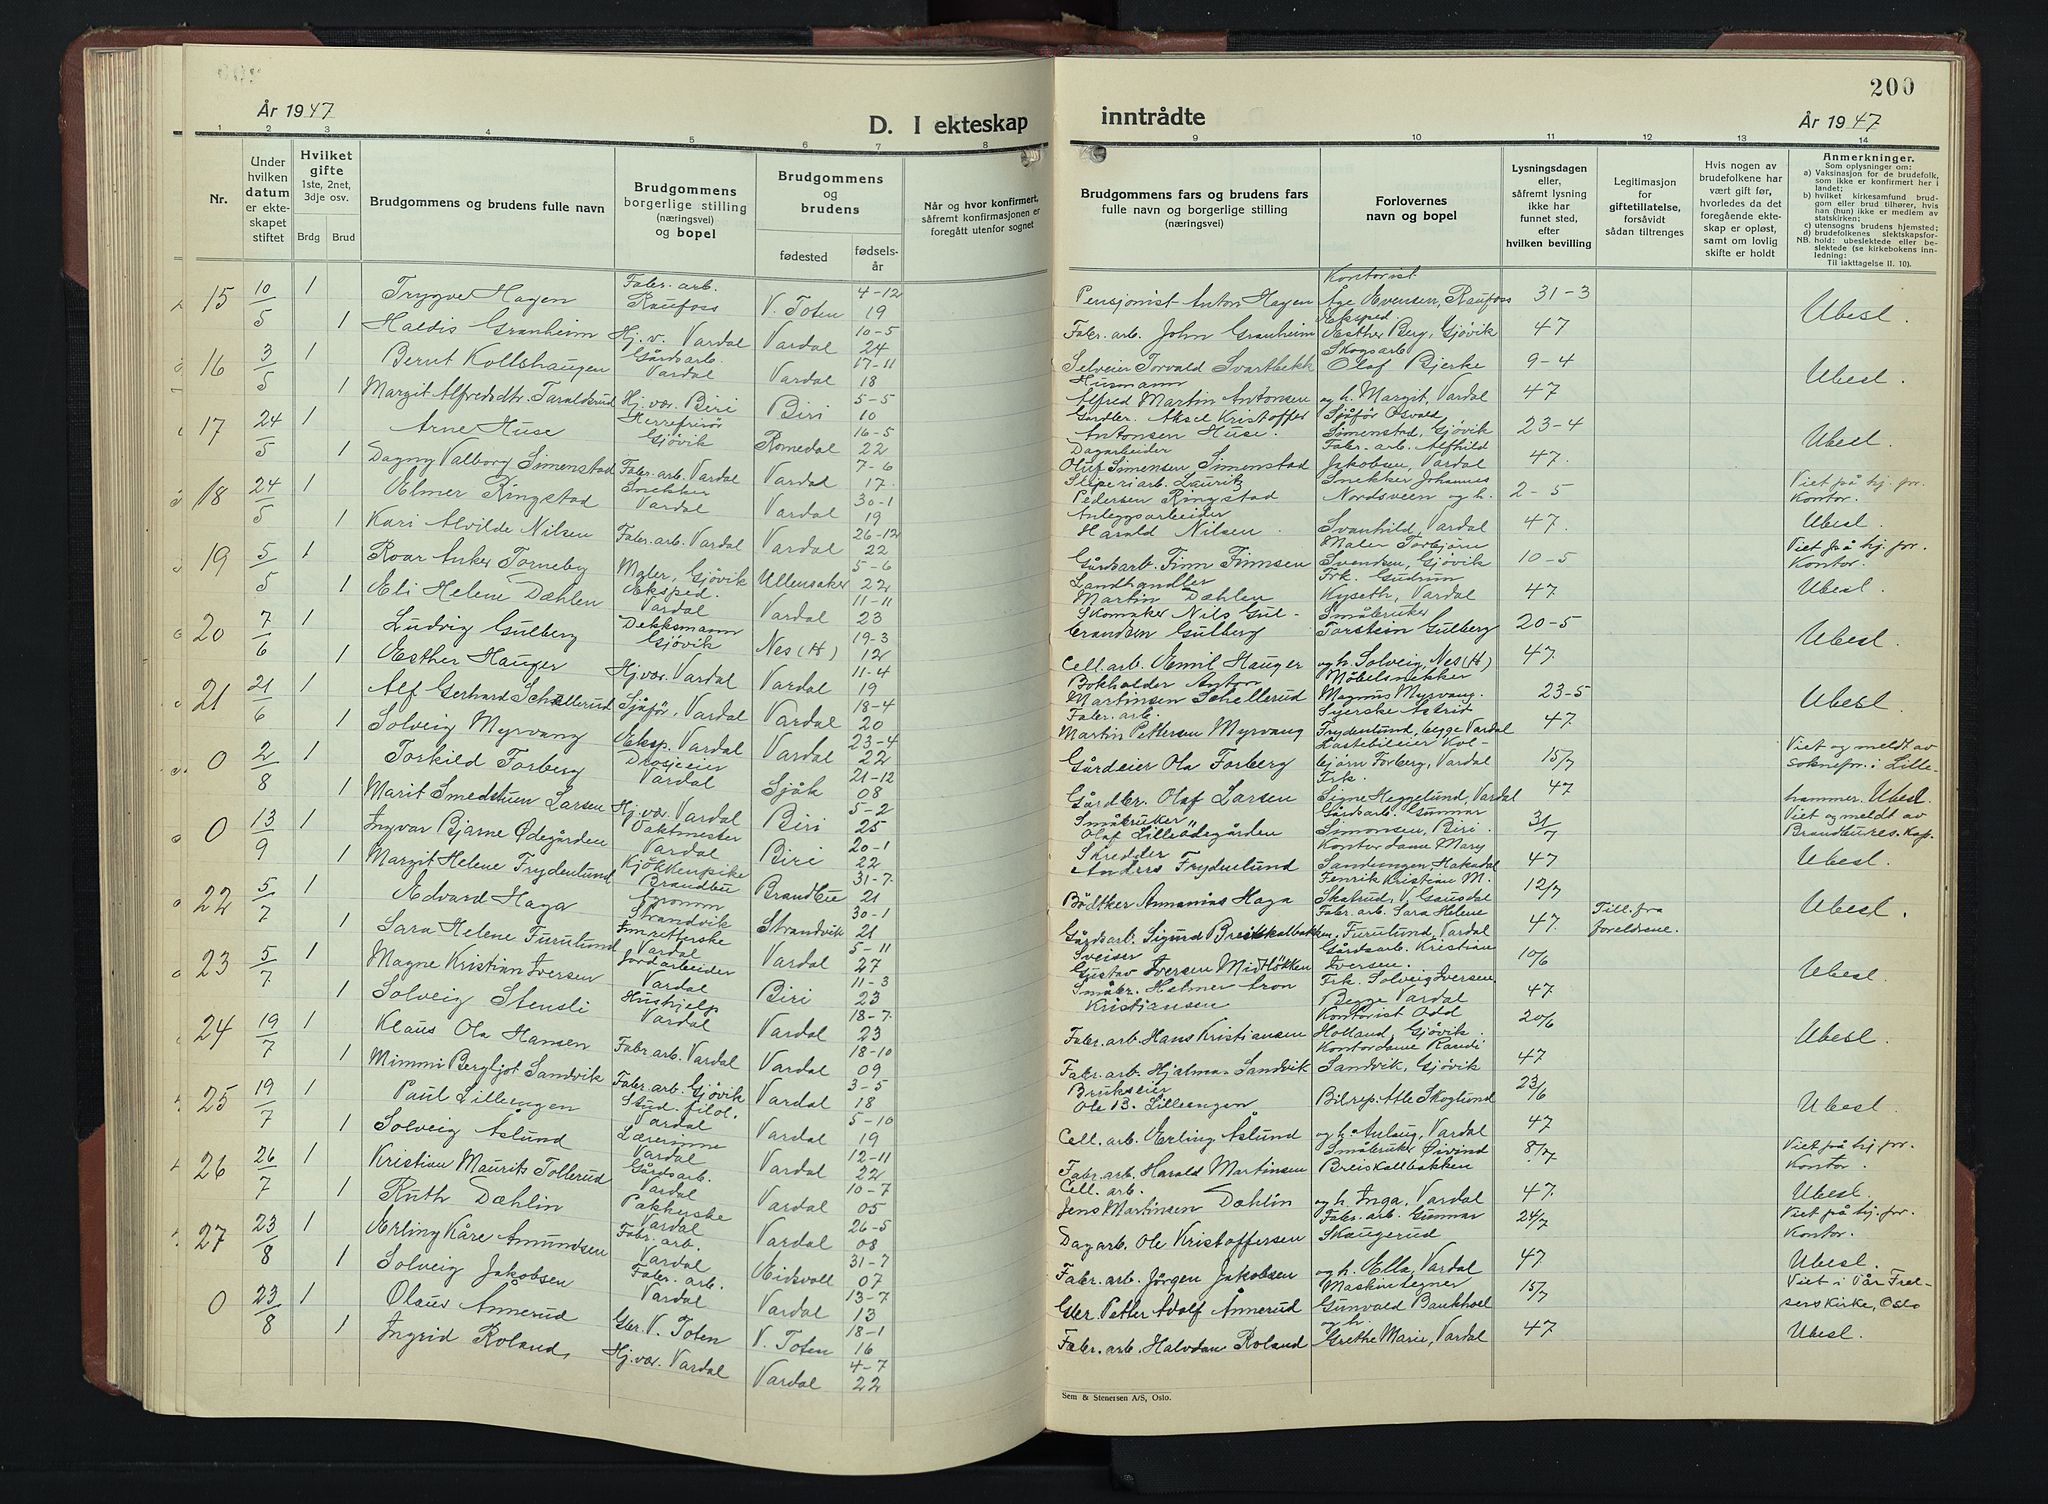 År 1947
D. I ekteskap
1 2 3 4 5 6 7 8
Nr.
Under hvilken datum er ekteskapet stiftet
Hvilket gifte
1ste, 2net, 3dje osv.
Brdg Brud
Brudgommens og brudens fulle navn
Brudgommens borgerlige stilling (næringsvei) og bopel
Brudgommens og brudens
fødested
fødsels-år
Når og hvor konfirmert, såfremt konfirmasjonen er foregått utenfor sognet
15 10/5 1 Trygve Hagen Fabr. arb. Raufoss V. Toten 4-12 19
1 Haldis Granheim Hj. v. Vardal Vardal 10-5 24
16 3/5 1 Bernt Kollshaugen Gårdsarb. Vardal Vardal 17-11 18
1 Margit Alfredsdtr. Taraldsrud Hj. vær. Biri Biri 5-5 10
17 24/5 1 Arne Huse Herrefrisør Gjøvik Romedal 16-5 22
1 Dagny Valborg Simenstad Fabr. arb. Vardal Vardal 7-6 17
18 24/5 1 Elmer Ringstad Snekker Vardal Vardal 30-1 19
1 Kari Alvilde Nilsen Fabr. arb. Vardal Vardal 26-12 22
19 5/5 1 Roar Anker Torneby Maler, Gjøvik Ullensaker 5-6 22
1 Eli Helene Dæhlen Eksped. Vardal Vardal 11-11 23
20 7/6 1 Ludvig Gulberg Dekksmann Gjøvik Nes (H) 19-3 12
1 Esther Hauger Hj. vær. Vardal Vardal 11-4 19
21 21/6 1 Alf Gerhard Schellerud Sjåfør, Vardal Vardal 18-4 20
1 Solveig Myrvang Eksp. Vardal Vardal 23-4 22
0 2/8 1 Torkild Forberg Drosjeeier Vardal Sjåk 21-12 08
1 Marit Smedstuen Larsen Hj. vær. Vardal Biri 5-2 25
0 13/9 1 Ingvar Bjarne Ødegården Vaktmester Vardal Biri 20-1 22
1 Margit Helene Frydenlund Kjøkkenpike Brandbu Brandbu 31-7 21
22 5/7 1 Edvard Haga Agronom Strandvik Strandvik 30-1 21
1 Sara Helene Furulund Innretterske Vardal Vardal 5-11 27
23 5/7 1 Magne Kristian Iversen Jordarbeider Vardal Biri 11-3 23
1 Solveig Stensli Hushjelp Vardal Vardal 18-7 23
24 19/7 1 Klaus Ola Hansen Fabr. arb. Vardal Vardal 18-10 09
1 Mimmi Bergljot Sandvik Fabr. arb. Gjøvik Vardal 3-5 18
25 19/7 1 Paul Lilleengen Stud. filol. Vardal Vardal 5-10 19
1 Solveig Åslund Lærerinne Vardal Vardal 12-11 22
26 26/7 1 Kristian Maurits Tollerud Gårdsarb. Vardal Vardal 10-7 05
1 Ruth Dæhlin Pakkerske Vardal Vardal 26-5 08
27 23/8 1 Erling Kåre Amundsen Fabr. arb. Vardal Eidsvoll 31-7 07
1 Solveig Jakobsen Fabr. arb. Vardal Vardal 13-7 13
0 23/8 1 Olaus Ånnerud Gbr. V. Toten V. Toten 18-1 16
1 Ingrid Roland, Hj. vær. Vardal Vardal 4-7 22
200
inntrådte
År 1947
9 10 11 12 13 14
Brudgommens fars og brudens fars fulle navn og borgerlige stilling (næringsvei)
Forlovernes navn og bopel
Lysningsdagen eller, såfremt lysning ikke har funnet sted, efter hvilken bevilling
Legitimasjon for giftetillatelse, forsåvidt sådan tiltrenges
Hvis nogen av brudefolkene har vært gift før, hvorledes da det foregående ekteskap er opløst, samt om lovlig skifte er holdt
Anmerkninger.
Som oplysninger om:
a) Vaksinasjon for de brudefolk, som ikke er konfirmert her i landet;
b) hvilket kirkesamfund brudgom eller brud tilhører, hvis han (hun) ikke er medlem av statskirken;
c) utensogns brudens hjemsted;
d) brudefolkenes slektskapsforhold: ubeslektede eller beslektede (se kirkebokens innledning:
NB.
Til iakttagelse II. 10).
Pensjonist Anton Hagen Kontorist Åge Evensen, Raufoss 31-3 Ubesl.
Fabr. arb. John Granheim Eksped. Esther Berg, Gjøvik 47
Selveier Torvald Svartbekk Skogsarb Olaf Bjerke 9-4 Ubesl.
Husmann Alfred Martin Antonsen og h. Margit, Vardal 47
Gårdbr. Aksel Kristoffer Antonsen Huse. Sjåfør Osvald Simenstad, Gjøvik 23-4 Ubesl.
Dagarbeider Oluf Simensen Simenstad Fabr. arb. Alfhild Jakobsen, Vardal 47.
Sliperiarb. Lauritz Pedersen Ringstad Snekker Johannes Nordsveen og h. 2-5 Viet på hj. for. Kontor.
Anleggsarbeider Harald Nilsen Svanhild, Vardal 47. Ubesl.
Gårdsarb. Finn Finnsen Maler Torbjørn Svendsen, Gjøvik 10-5 Viet på hj. for. Kontor.
Landhandler Martin Dæhlen Frk. Gudrun Kyseth, Vardal 47 Ubesl.
Skomaker Nils Gulbrandsen Gulberg Småbruker Torstein Gulberg 20-5 Ubesl.
Cell. arb. Emil Hauger og h. Solveig, Nes (H) 47
Bokholder Anton Martinsen Schellerud Møbelsnekker Magnus Myrvang. 23-5 Ubesl.
Fabr. arb. Martin Pettersen Myrvang Syerske Astrid Frydenlund, begge Vardal 47.
Gårdeier Ola Forberg Lastebileier Kolbjørn Forberg, Vardal 15/7 Viet og meldt av sokneprr. i Lillehammer. Ubesl.
Gårdbr. Olaf Larsen Frk. Signe Heggelund, Vardal 47
Småbruker Olaf Lilleødegården Gårdsarb. Gunnar Simonsen, Biri. 31/7 Viet og meldt av Brandbu res. kap.
Skredder Anders Frydenlund Kontordame Mary Sandengen Hakadal 47 Ubesl.
Bødtker Annanias Haga Fenrik Kristian M. Skatrud, V. Gausdal 12/7 Ubesl.
Gårdsarb. Sigurd Breiskallbakken, Fabr. arb. Sara Helene Furulund, Vardal 47. Till. fra foreldrene.
Sveiser Gustav Iversen Midtløkken Gårdsarb. Kristian Iversen. 10/6 Ubesl.
Småbr. Helmer Aron Kristiansen Frk. Solveig Iversen Begge Vardal 47.
Fabr. arb. Hans Kristiansen Kontorist Odd Holland, Gjøvik. 20/6 Ubesl.
Fabr. arb. Hjalmar Sandvik Kontordame Randi Sandvik, Gjøvik 47
Brukseier Ole B. Lillengen Bilrep. Atle Skoglund 23/6 Ubesl.
Cell. arb. Erling Åslund og h. Aslaug, Vardal 47
Fabr. arb. Harald Martinsen Småbruker Øivind Breiskallbakken 8/7 Viet på hj. for. Kontor.
Cell. arb. Jens Martinsen Dæhlin og h. Inga, Vardal 47. Ubesl.
Dagarb. Ole Kristoffersen Fabr. arb. Gunnar Skaugerud 24/7 Viet på hj. for. Kontor.
Fabr. arb. Jørgen Jakobsen og h. Ella, Vardal 47. Ubesl.
Gbr. Petter Adolf Ånnerud Maskintegner Gunvald Bankhoel 15/7 Viet i Vår Frelserskirke, Oslo
Fabr. arb. Halvdan Roland og h. Grethe Marie, Vardal 47 Ubesl.
Sem & Stenersen A/S, Oslo.